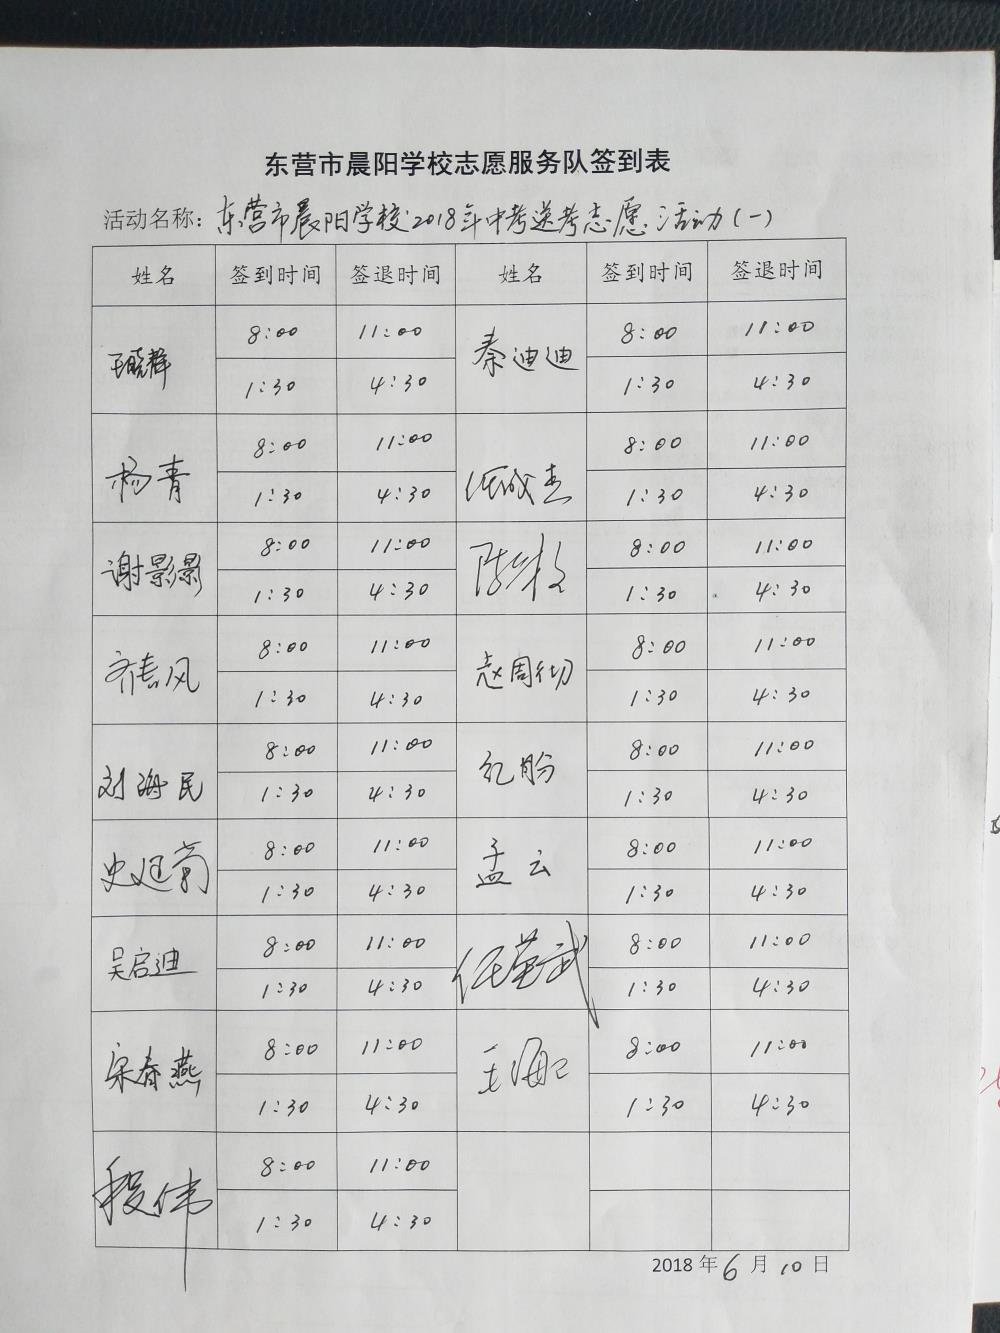 东营市晨阳学校志愿服务队签到表
活动名称：东营市晨阳学校2018年中考送考志愿活动（一）
姓名 签到时间 签退时间 姓名 签到时间 签退时间
8:00 11:00 8:00 11:00
王晓静 秦迪迪
1:30 4:30 1:30 4:30
8:00 11:00 8:00 11:00
杨青
1:30 4:30 1:30 4:30
8:00 11:00 8:00 11:00
谢影影
1:30 4:30 1:30 4:30
8:00 11:00 8:00 11:00
齐春风
1:30 4:30 1:30 4:30
8:00 11:00 8:00 11:00
刘海民 纪盼
1:30 4:30 1:30 4:30
8:00 11:00 8:00 11:00
史延菊 孟云
1:30 4:30 1:30 4:30
8:00 11:00 8:00 11:00
吴启迪
1:30 4:30 1:30 4:30
8:00 11:00 8:00 11:00
宋春燕
1:30 4:30 1:30 4:30
8:00 11:00
程伟
1:30 4:30
2018年6月10日